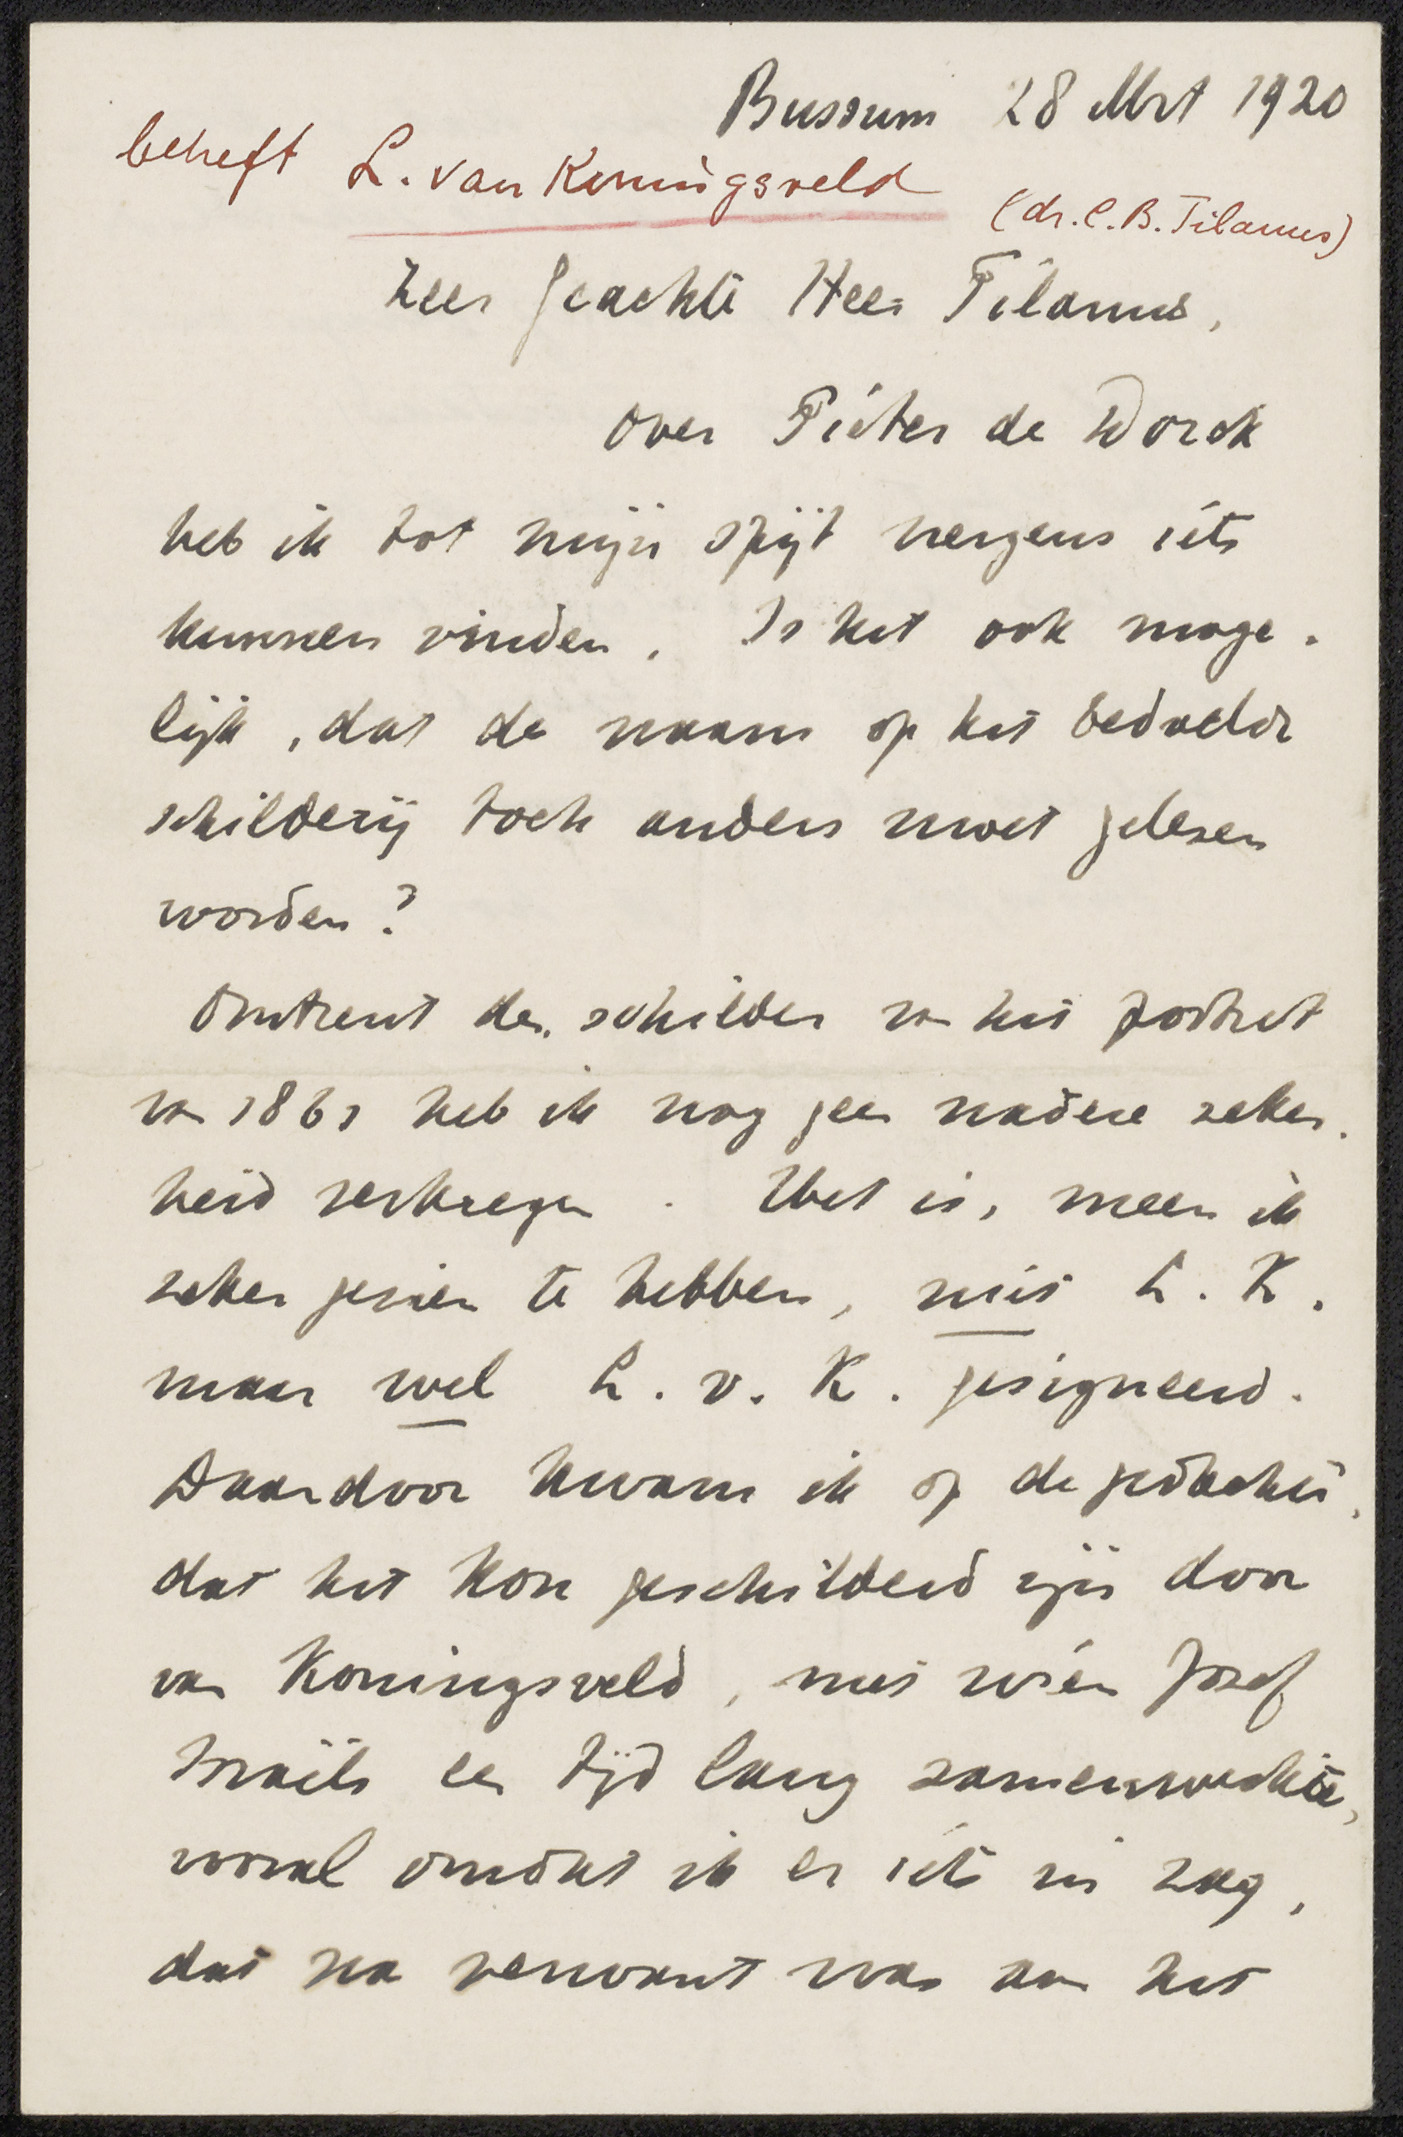 Bussum 28 Mrt 1920
betreft L. van Koningsveld
(dr. C. B. Tilanus)
Zeer geachte Heer Tilanus,
Over Pieter de Worck
heb ik tot mijn spijt nergens iets
kunnen vinden. Is het ook moge-
lijk, dat de naam op het bedoelde
schilderij toch anders moet gelezen
worden?
Omtrent den schilder van het portret
van 1861 heb ik nog geen nadere zeker-
heid verkregen. Het is, meen ik
zeker gezien te hebben, niet L. K.
maar wel L. v. K. gesigneerd.
Daardoor kwam ik op de gedachte,
dat het kon geschilderd zijn door
van Koningsveld, met wien Jozef
Israëls een tijd lang samenwerkte,
vooral omdat ik er iets in zag,
dat na verwant was aan het